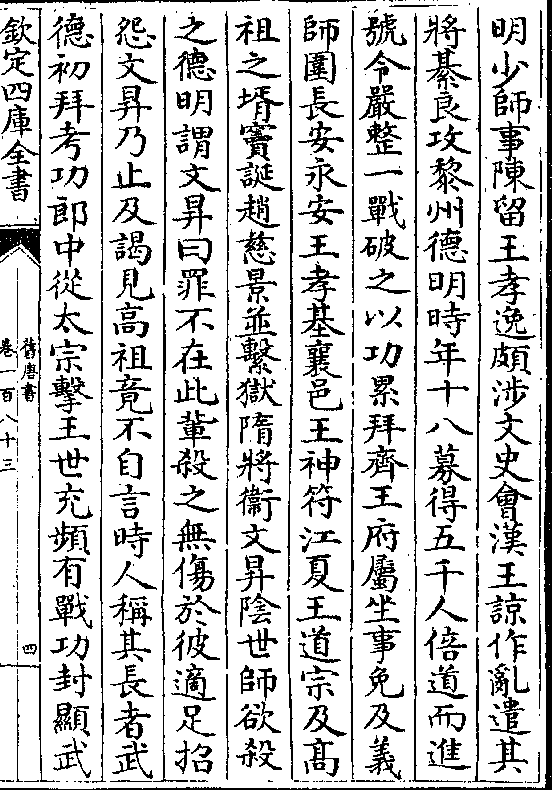 明少師事陳留王孝逸頗涉文史會漢王諒作亂遣其
將綦良攻黎州德明時年十八募得五千人倍道而進
號令嚴整一戰破之以功累拜齊王府屬坐事免及義
師圍長安永安王孝基襄邑王神符江夏王道宗及髙
祖之壻竇誕趙慈景並繫獄隋將衞文昇陰世師欲殺
之德明謂文昇曰罪不在此輩殺之無傷於彼適足招
怨文昇乃止及謁見高祖竟不自言時人稱其長者武
德初拜考功郎中從太宗擊王世充頻有戰功封顯武
欽定四庫全書
舊唐書
卷一百八十三
四